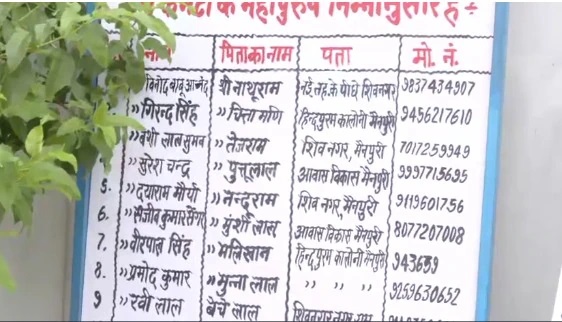 कमेटी के महापुरुष निम्नानुसार है :-
नाम पिता का नाम पता मो. नं.
विनोद बाबू श्री नाथूराम नई नहर के पीछे शिवनगर 9837434907
" गिरन्द सिंह " चिन्ता मणि हिन्दपुरम कालोनी मैनपुरी 9456217610
" वंशी लाल सुमन " तेजराम शिव नगर, मैनपुरी 7017259949
" सुरेश चन्द्र " पुत्तूलाल आवास विकास मैनपुरी 9997715695
5. " दयाराम मौर्या " नन्दूराम शिव नगर, मैनपुरी 9119601756
6. " संजीव कुमार " मुंशी लाल आवास विकास मैनपुरी 8077207008
7. " वीरपाल सिंह " मलिखान हिन्दपुरम कालोनी मैनपुरी 943659
8. " प्रमोद कुमार " मुन्ना लाल " " " 9259630652
9 " रवी लाल बैचे लाल शिवनगर